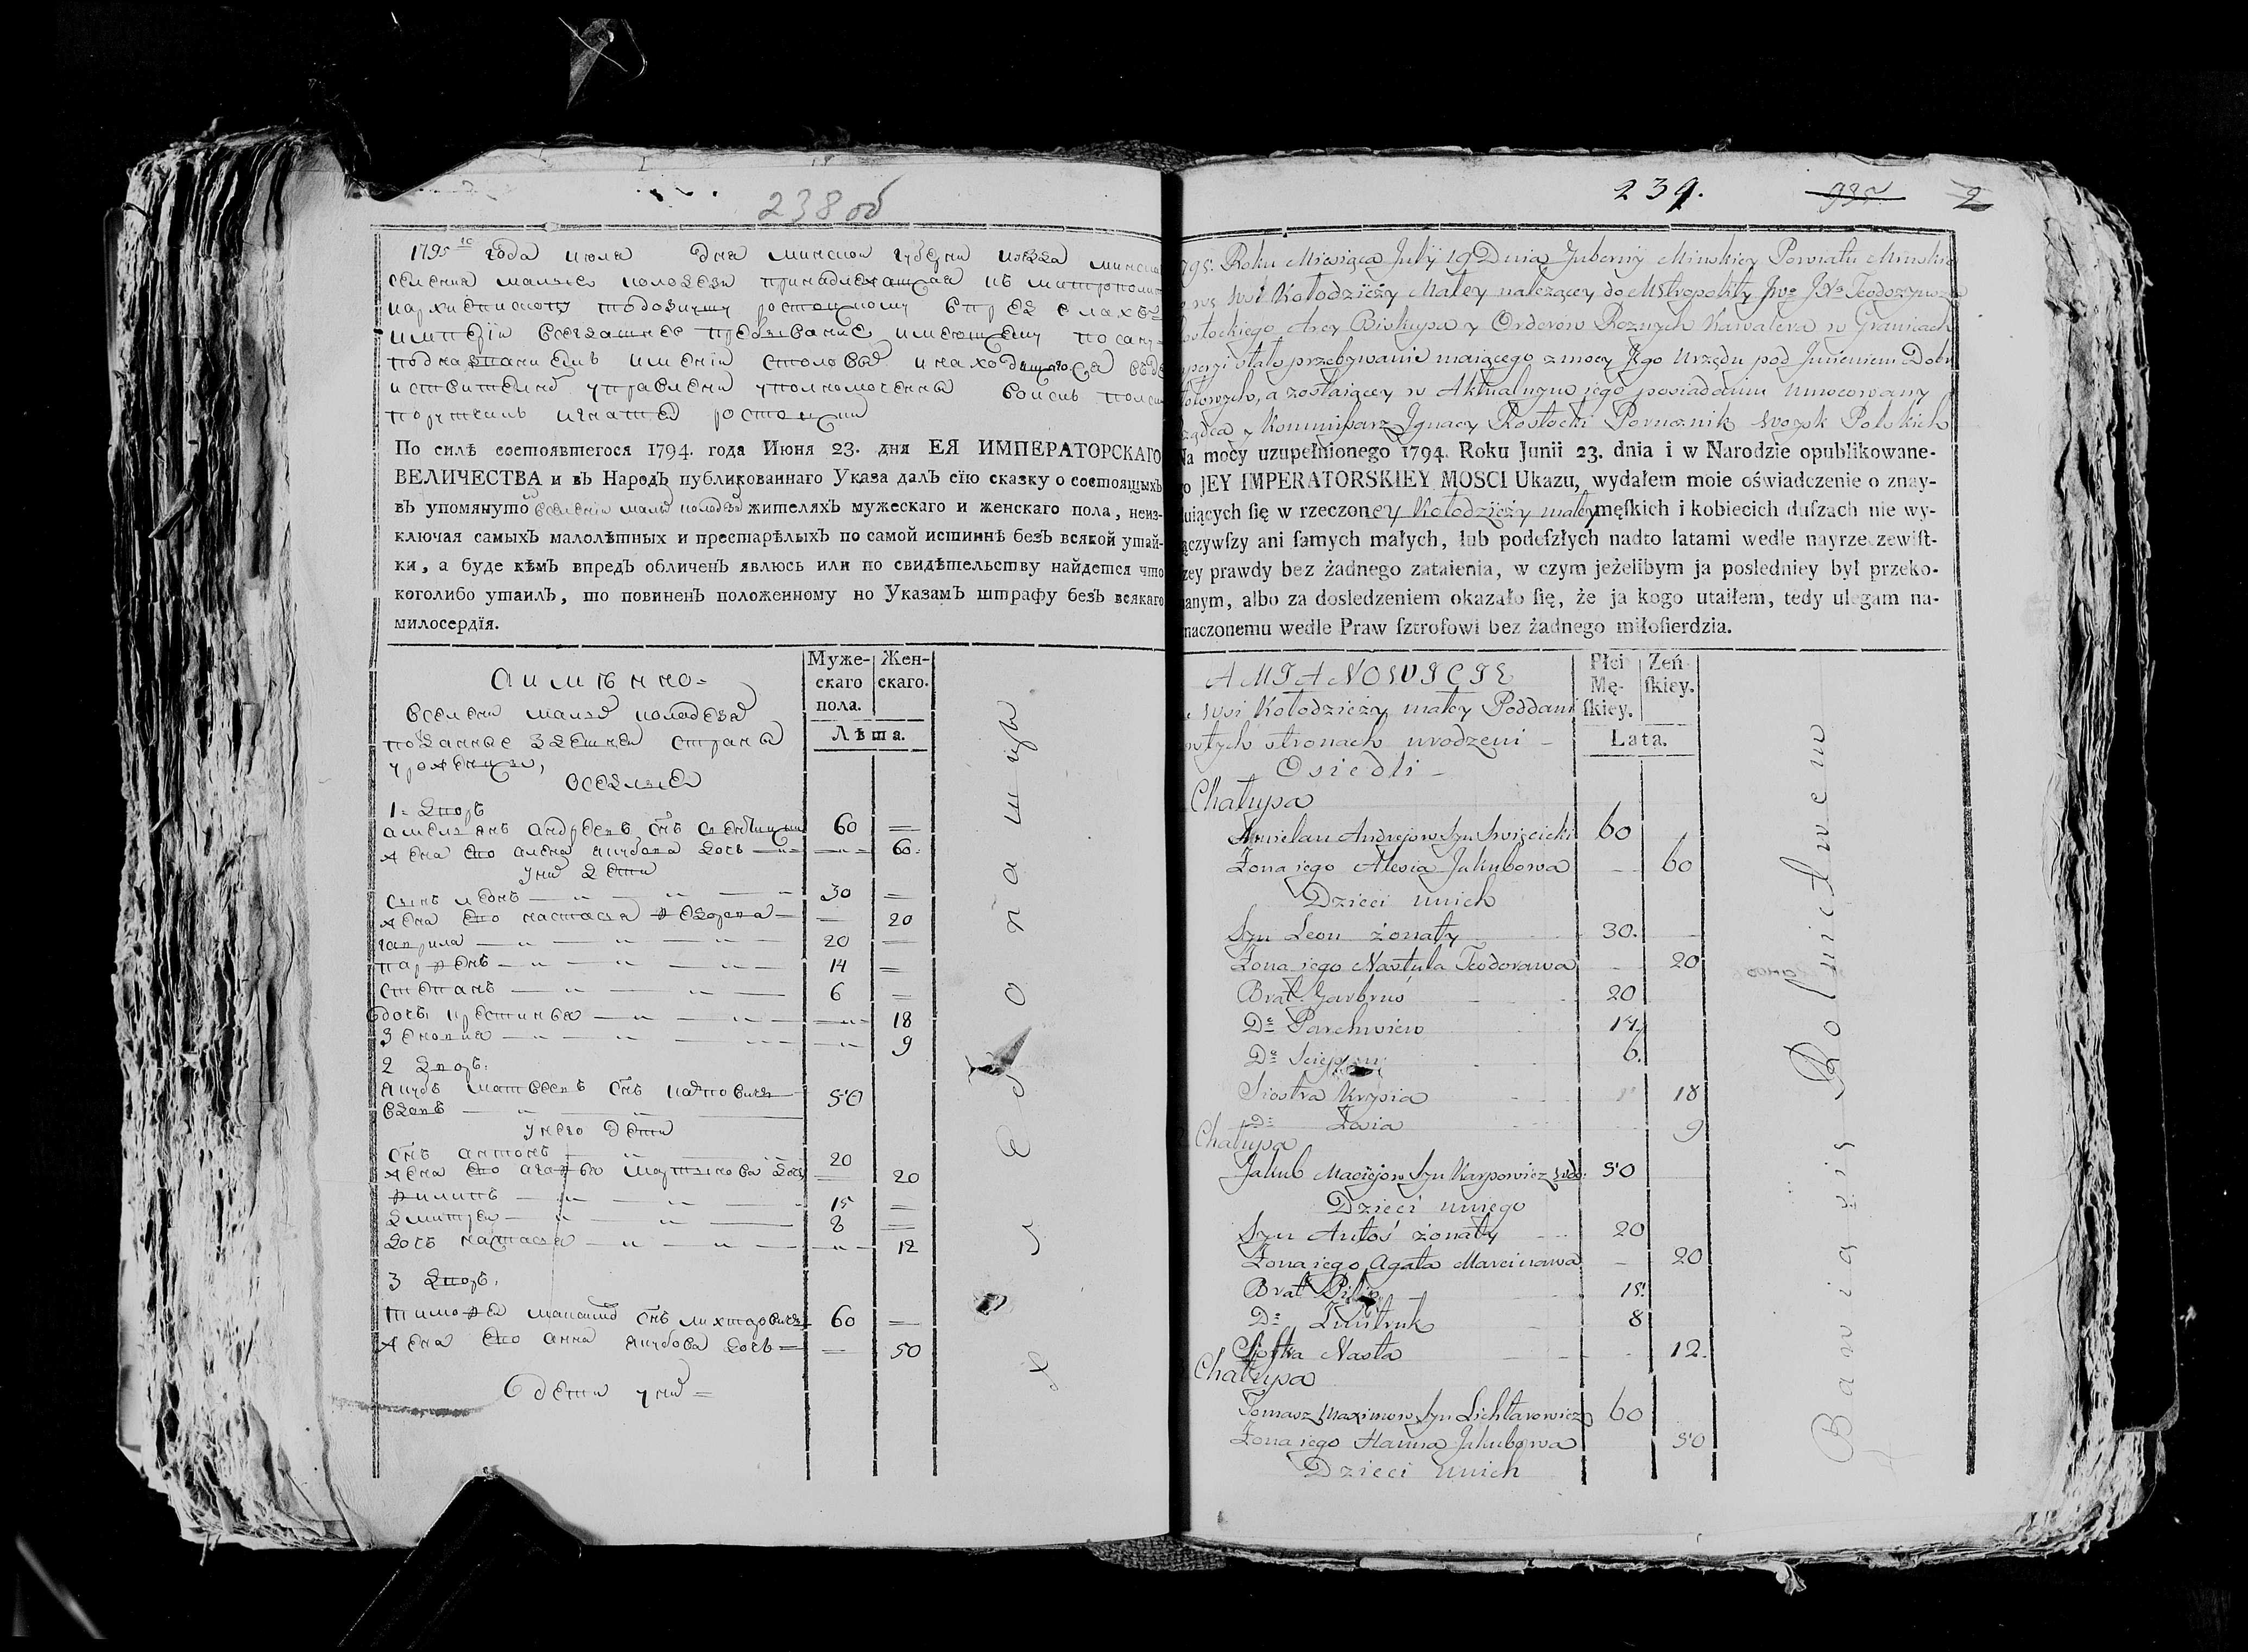 238 об
1795 го года июля дня минской губерни
селения малые колодези принадлежащая
имперїи всегдашнее пребывание имеющему по сану
под названием имении столовые
управлени уполномоченны
порутчикъ игнатей
По силѣ состоявшегося 1794. года Июня 23. дня ЕЯ ИМПЕРАТОРСКАГО
ВЕЛИЧЕСТВА и въ Народъ публикованнаго Указа далъ сїю сказку о состоящыхъ
въ упомянуто селении малы колодезе жителяхъ мужескаго и женскаго пола, неиз-
ключая самыхъ малолѣтныхъ и престарѣлыхъ по самой истиннѣ безъ всякой утай-
ки, а буде кѣмъ впредь обличенъ явлюсь или по свидѣтельству найдется что
коголибо утаилъ, то повиненъ положенному по Указамъ штрафу безъ всякаго
милосердїя.
Муже-скаго пола. Жен-скаго.
Лѣта.
а имѣнно=
в селени малые колодези
поданные здешней страны
уроженцы,
оседлые
1= дворъ
амельянъ андреевъ снъ 60
жена его алена якубова дочь 60
у ни дети
сынъ леонъ 30
жена его настасья федорова 20
гаврила 20
парфенъ 14
степанъ 6
дочь кристинья 18
зеновия 9
2 дворъ.
якубъ матвеевъ снъ карповичъ 50
вдовъ
у него дети
снъ антонъ 20
жена его агафья мартинова дочь 20
филипъ 15
дмитрей 8
дочь настасья 12
3 дворъ.
тимофей снъ лихтаровичъ 60
жена его анна якубова дочь 50
дети у ни=
хлебопашцы
239. 2
795. Roku Miesiąca Julÿ 19 Dnia Gubernÿ Minskiey Powiatu Minskie
wsi Kołodzieży Małey nalezącey do Metropolity
Arcy Biskupa y Orderow Roznych Kawalera w Granicach
stałe przebywanie maiącego z mocy Jego Urzędu pod Imieniem Dobr
a zostaiącey w Aktualnym jego posiadaniu Umocowany
y Kommissarz Jgnacy Rostocki Porucznik woysk Polskich
Na mocy uzupełnionego 1794. Roku Junii 23. dnia i w Narodzie opublikowane-
o JEY IMPERATORSKIEY MOSCI Ukazu, wydałem moie oświadczenie o znay-
duiących ſię w rzeczoney Kołodzieży małey męſkich i kobiecich duſzach nie wy-
ączywſzy ani ſamych małych, lub podeſzłych nadto latami wedle nayrzeczewiſt-
zey prawdy bez żadnego zataienia, w czym jeżelibym ja posledniey był przeko-
nanym, albo za dosledzeniem okazało ſię, że ja kogo utaiłem, tedy ulegam na-
naczonemu wedle Praw ſztrofowi bez żadnego miłoſierdzia.
Płci Mę-ſkiey. Zeń-ſkiey.
Lata.
A MIANOWICIE
wsi Kołodzieży małey Poddani
w tych stronach urodzeni -
Osiedli -
Chałupa
Amielan Andrejow Syn Swięcicki 60
Zona iego Alesia Jakubowa 60
Dzieci unich
Syn Leon żonaty 30.
Zona iego Nastula Teodorawa 20
Brat Gawbruś 20
De Parchwien 14
De Sciepan 6.
Siostra Krysia 18
De Zosia 9
Chałupa
Jakub Maciejow Syn Karpowicz wdo: 50
Dzieci uniego
Syn Antoś żonaty 20
Zona iego Agata Marcinowa 20
Brat Pilip 15
De Zmitruk 8
Siostra Nasta 12.
Chałupa
Tomasz Maximow Syn Lichtarowicz 60
Zona iego Hanna Jakubowa 50
Dzieci unich
Bawią się Rolnictwem